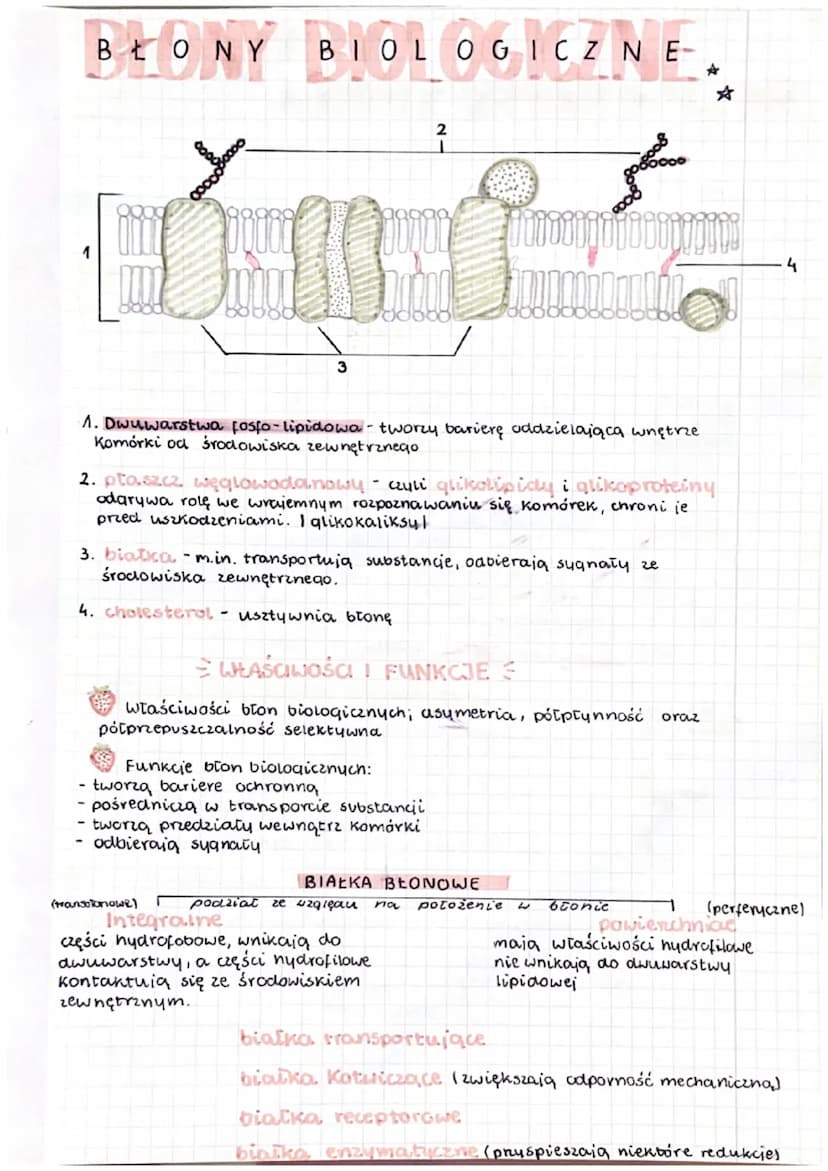 BŁONY BIOLOGICZNE
2
1
4
3
1. Dwuwarstwa fosfo-lipidowa - tworzy barierę oddzielającą wnętrze
komórki od środowiska zewnętrznego
2. płaszcz węglowodanowy - czyli glikolipidy i glikoproteiny
odgrywa rolę we wzajemnym rozpoznawaniu się komórek, chroni je
przed uszkodzeniami. | glikokaliksy|
3. białka - m.in. transportują substancje, odbierają sygnały ze
środowiska zewnętrznego.
4. cholesterol - usztywnia błonę
WŁAŚCIWOŚCI I FUNKCJE
właściwości błon biologicznych; asymetria, półpłynność oraz
półprzepuszczalność selektywna
Funkcje błon biologicznych:
- tworzą bariere ochronną
- pośredniczą w transporcie substancji
- tworzą przedziały wewnątrz komórki
- odbierają sygnały
BIAŁKA BŁONOWE
(transbłonowe) podział ze względu na położenie w błonie (perferyczne)
Integralne powierzchniac
części hydrofobowe, wnikają do
dwuwarstwy, a części hydrofilowe
kontaktują się ze środowiskiem
zewnętrznym.
mają właściwości hydrofilowe
nie wnikają do dwuwarstwy
lipidowej
białka transportujące
białka kotwiczące (zwiększają odporność mechaniczną)
białka receptorowe
białka enzymatyczne (pryśpieszają niektóre redukcje)